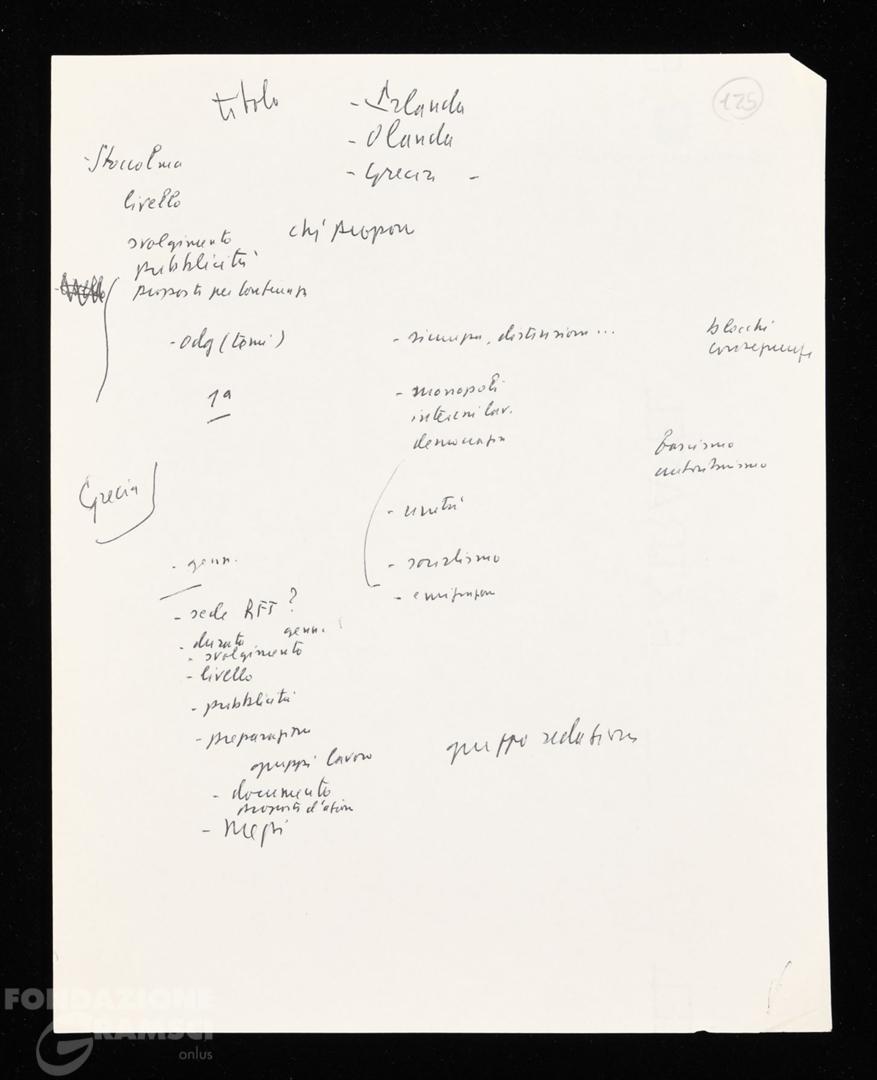 titolo
- Irlanda
125
- Olanda
- Stoccolma
- Grecia -
livello
svolgimento
chi propon
pubblicità
proposta per conferenza
- odg (temi)
- sicurezza, distensione...
blocchi
conseguenze
1ª
- monopoli
interessi lav.
democrazia
fascismo
autoritarismo
Grecia
- unità
- genn.
- socialismo
- emigrazione
- sede RFT?
- durata genn.
- svolgimento
- livello
- pubblicità
- preparazione
gruppo redazione
gruppi lavoro
- documento
proposta d'azione
-
FONDAZIONE
GRAMSCI
onlus